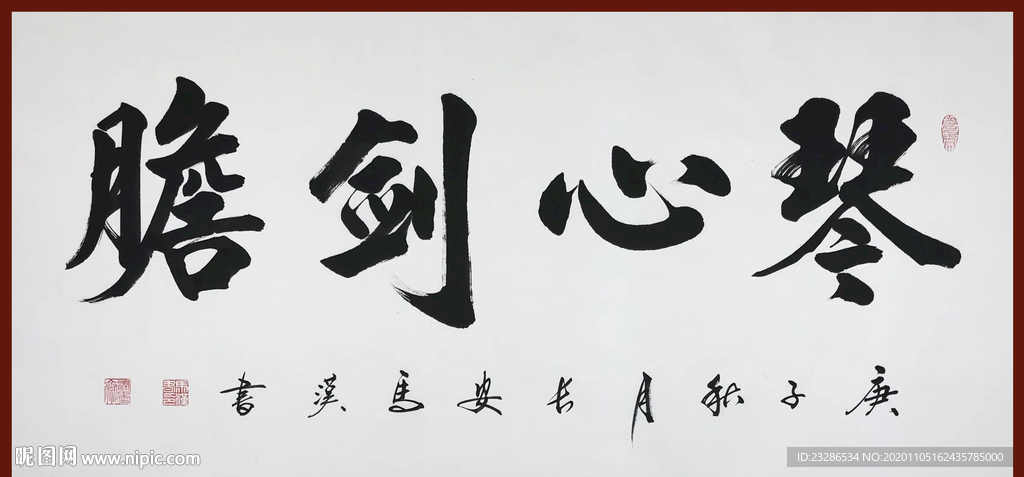 琴心剑膽
庚子秋月长安馬漢書
昵图网 www.nipic.com
ID:23286534 NO:20201105162435785000